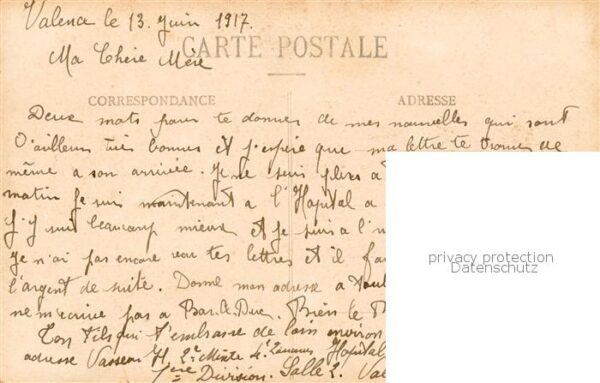 Valence le 13 Juin 1917.
CARTE POSTALE
Ma Chère Mère
CORRESPONDANCE
ADRESSE
Deux mots pour te donner de mes nouvelles qui sont
D'ailleurs très bonnes et j'espère que ma lettre te trouve de
même a son arrivée. Je ne suis plus a
matin Je suis maintenant a l'Hopital a
j'y suis beaucoup mieux et je suis a l'
Je n'ai pas encore reçu tes lettres et il
l'argent de suite. Donne mon adresse a
ne m'écrive pas a Bar-le-Duc. Bien le
Ton fils qui t'embrasse de loin environ
adresse Vasseur H. 2e Mixte 4e Zouaves Hopital
1ère Division. Salle 2.
privacy protection
Datenschutz